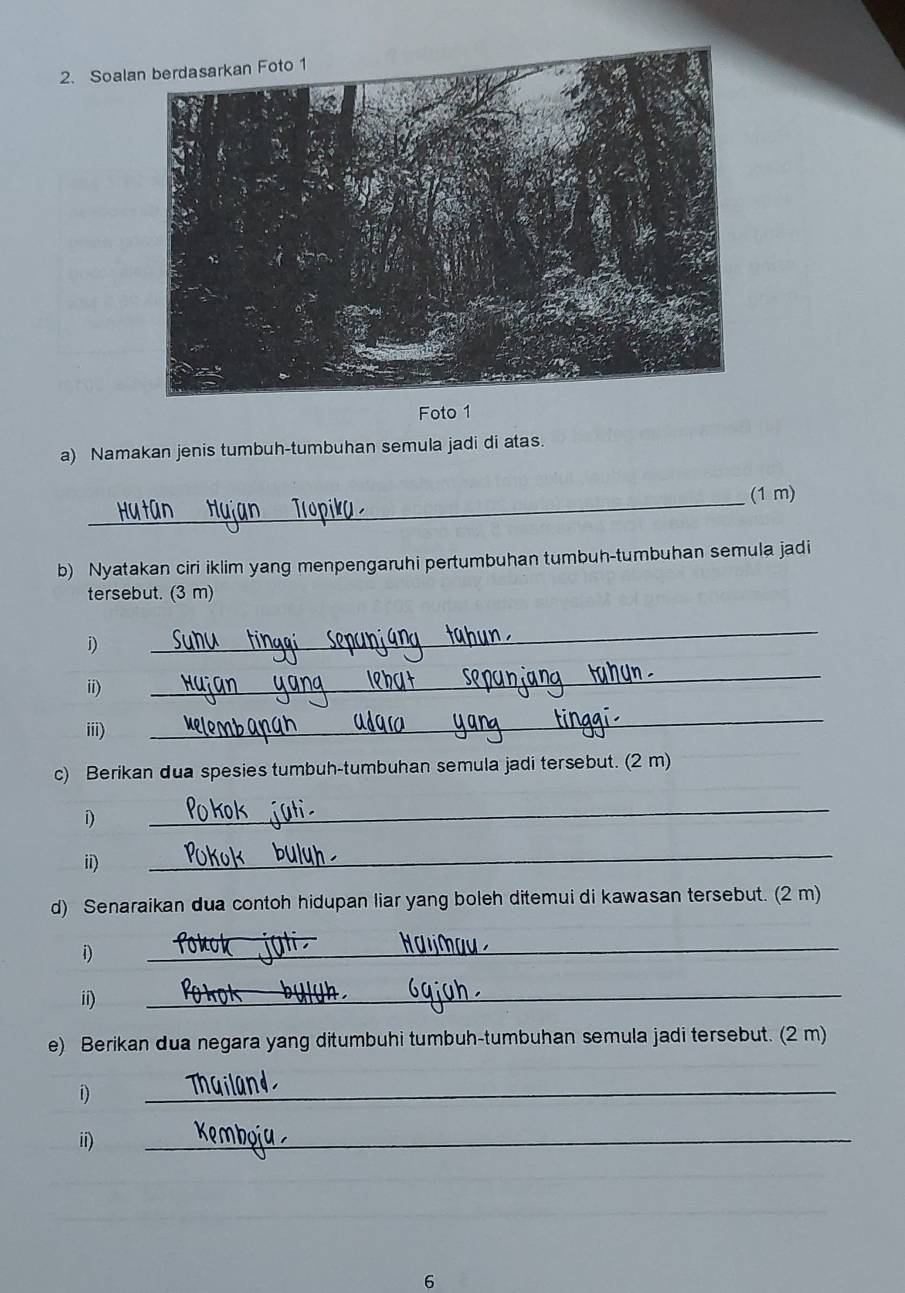 2. Soalan berdasarkan Foto 1
Foto 1
a) Namakan jenis tumbuh-tumbuhan semula jadi di atas.
Hutan Hujan Tropika. (1 m)
b) Nyatakan ciri iklim yang menpengaruhi pertumbuhan tumbuh-tumbuhan semula jadi
tersebut. (3 m)
i) Suhu tinggi sepanjang tahun.
ii) Hujan yang lebat sepanjang tahun.
iii) Kelembapan udara yang tinggi.
c) Berikan dua spesies tumbuh-tumbuhan semula jadi tersebut. (2 m)
i) Pokok jati.
ii) Pokok buluh.
d) Senaraikan dua contoh hidupan liar yang boleh ditemui di kawasan tersebut. (2 m)
i) Pokok jati. Harimau.
ii) Pokok buluh. Gajah.
e) Berikan dua negara yang ditumbuhi tumbuh-tumbuhan semula jadi tersebut. (2 m)
i) Thailand.
ii) Kemboja.
6